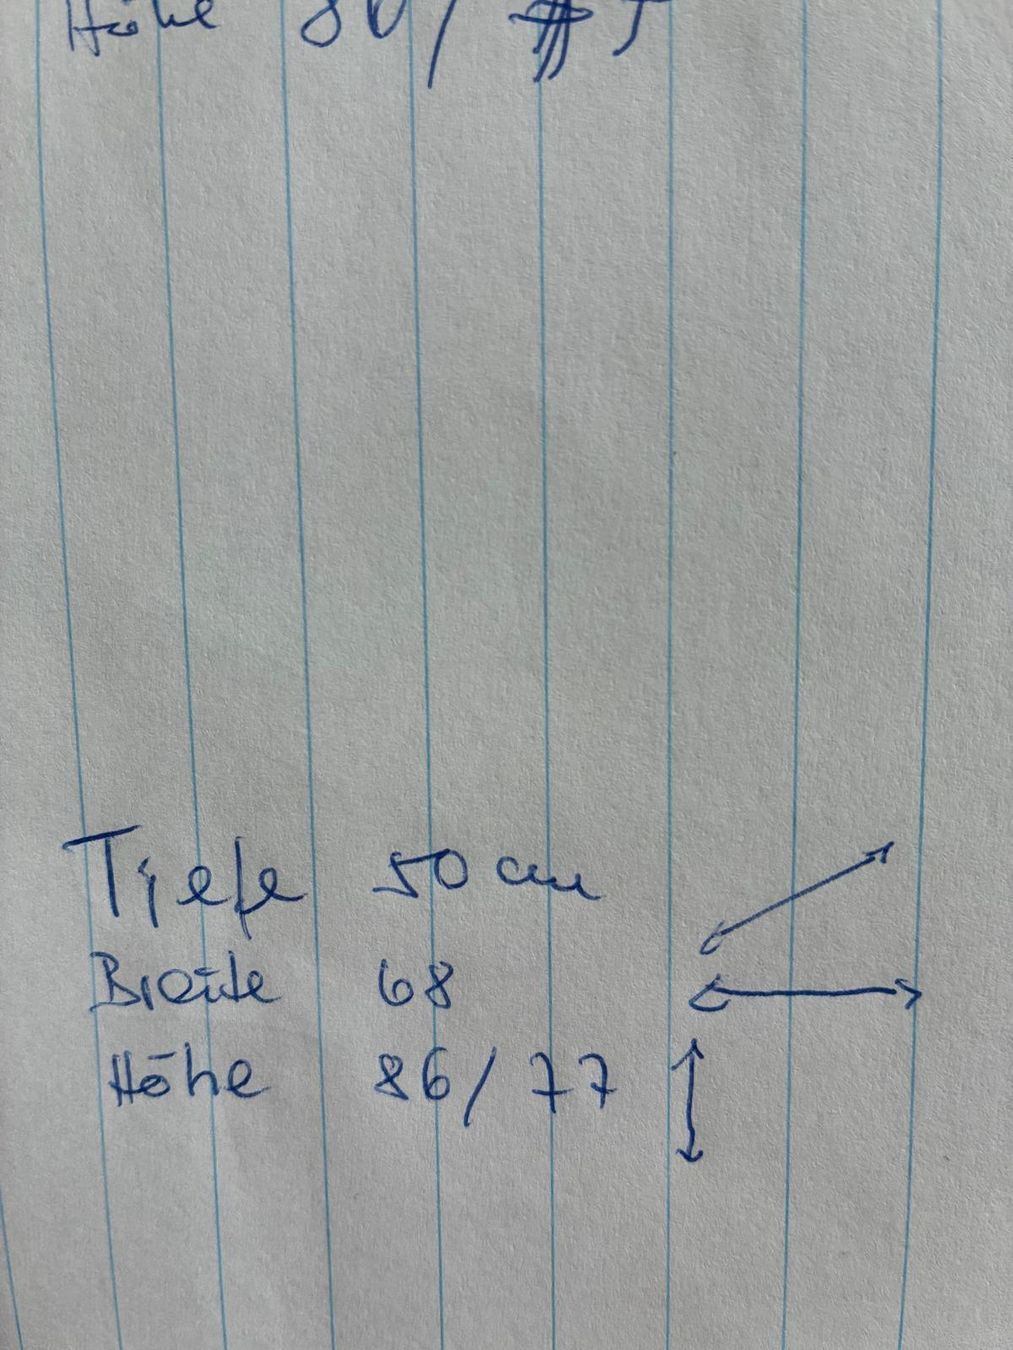 Höhe
Tiefe 50 cm
Breite 68
Höhe 86/77